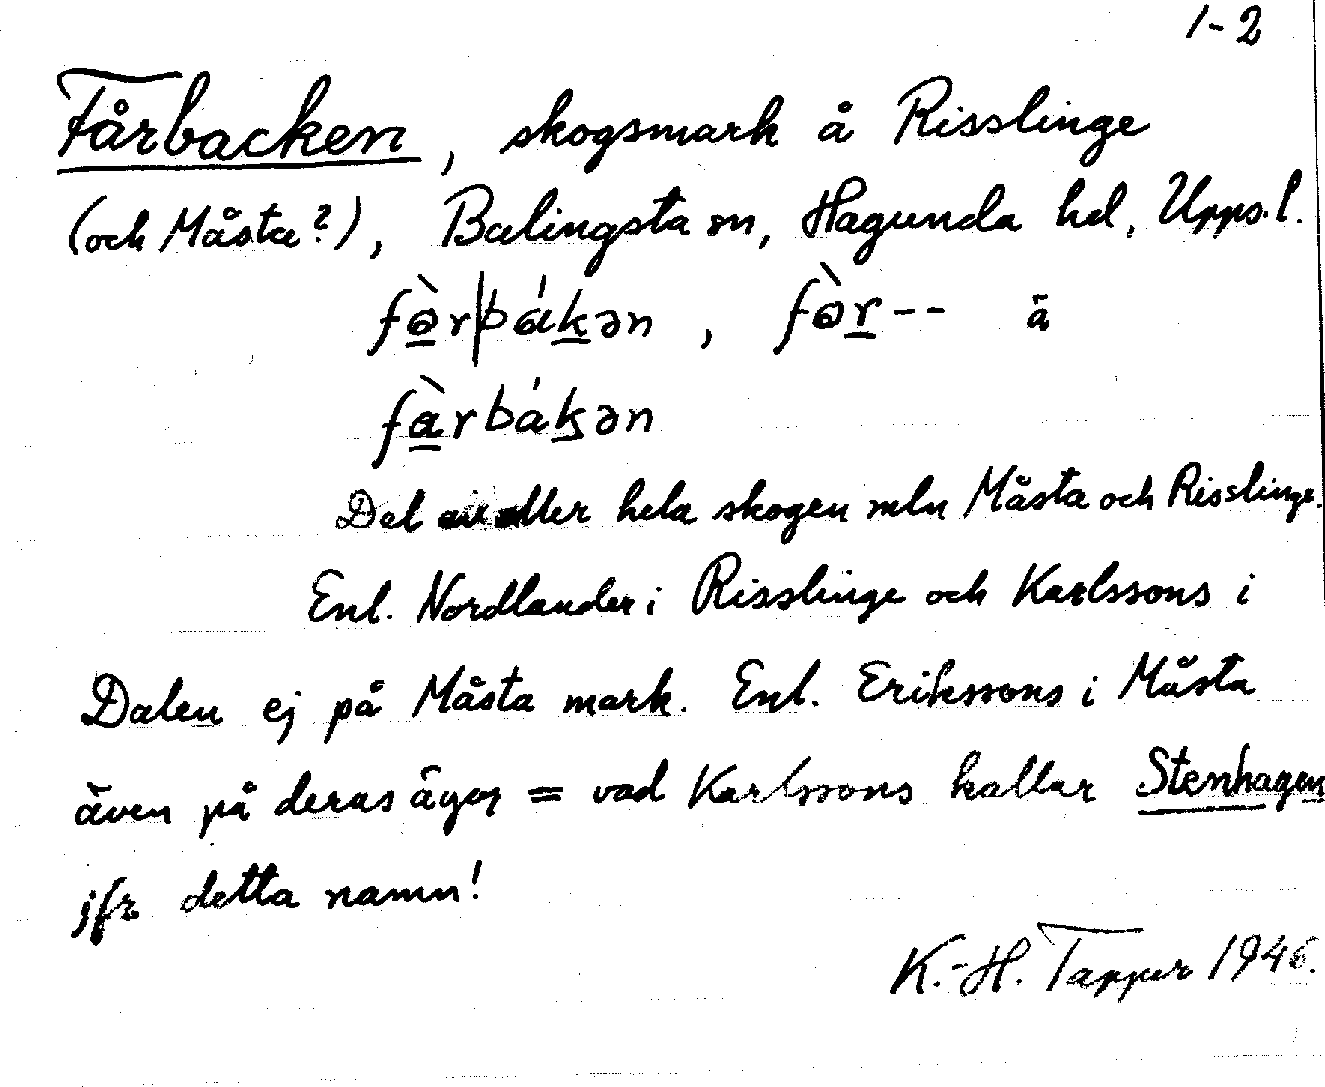 1-2
Fårbacken, skogsmark å Risslinge
(och Måsta?), Balingsta sn, Hagunda hd, Upps.l.
fàrbákən, fàr-- ä
fàrbákən
Del av eller hela skogen mln Måsta och Risslinge.
Enl. Nordlander i Risslinge och Karlssons i
Dalen ej på Måsta mark. Enl. Erikssons i Måsta
även på deras ägor = vad Karlssons kallar Stenhagen
jfr detta namn!
K.-H. Tapper 1946.